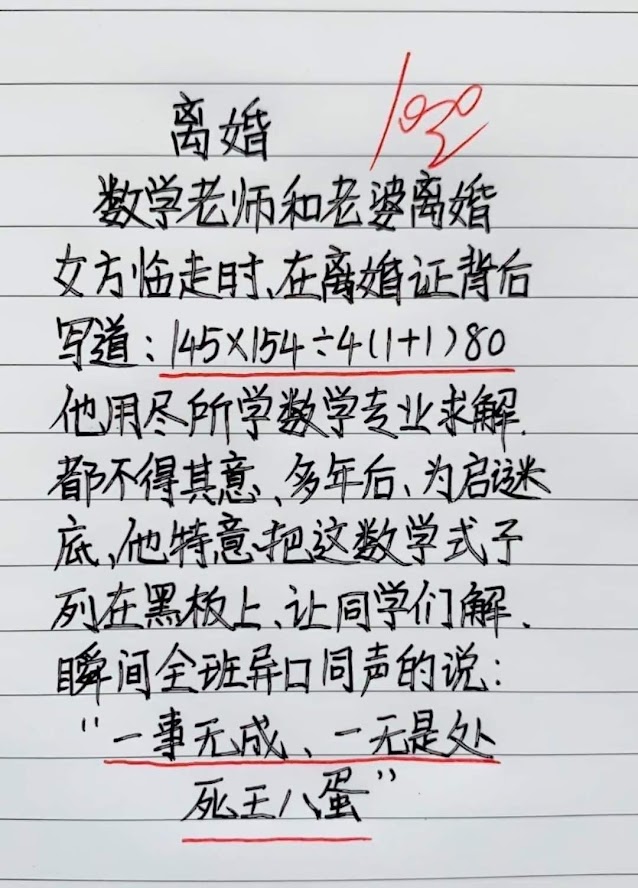 离婚
100
数学老师和老婆离婚
女方临走时、在离婚证背后
写道:145×154÷4(1+1)80
他用尽所学数学专业求解.
都不得其意、多年后、为启谜
底、他特意把这数学式子
列在黑板上、让同学们解.
瞬间全班异口同声的说:
“一事无成、一无是处
死王八蛋”